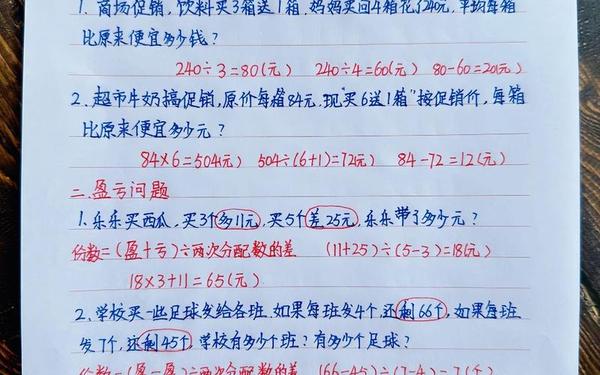 1. 商场促销，饮料买3箱送1箱.妈妈买回4箱花了240元，平均每箱
比原来便宜多少钱？
240÷3=80(元) 240÷4=60(元) 80-60=20(元)
2. 超市牛奶搞促销，原价每箱84元.现"买6送1箱"按促销价，每箱
比原来便宜多少元？
84×6=504(元) 504÷(6+1)=72(元) 84-72=12(元)
二.盈亏问题
1. 乐乐买西瓜，买3个多11元，买5个差25元，乐乐带了多少元？
份数=(盈+亏)÷两次分配数的差 (11+25)÷(5-3)=18(元)
18×3+11=65(元)
2. 学校买一些足球发给各班.如果每班发4个，还剩66个，如果每班
发7个，还剩45个，学校有多少个班？有多少个足球？
份数=(盈-盈)÷两次分配数的差 (66-45)÷(7-4)=7(个)